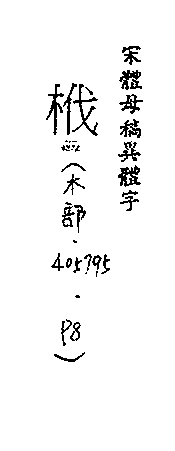 宋體母稿異體字
栰
(木部.405795.P8)